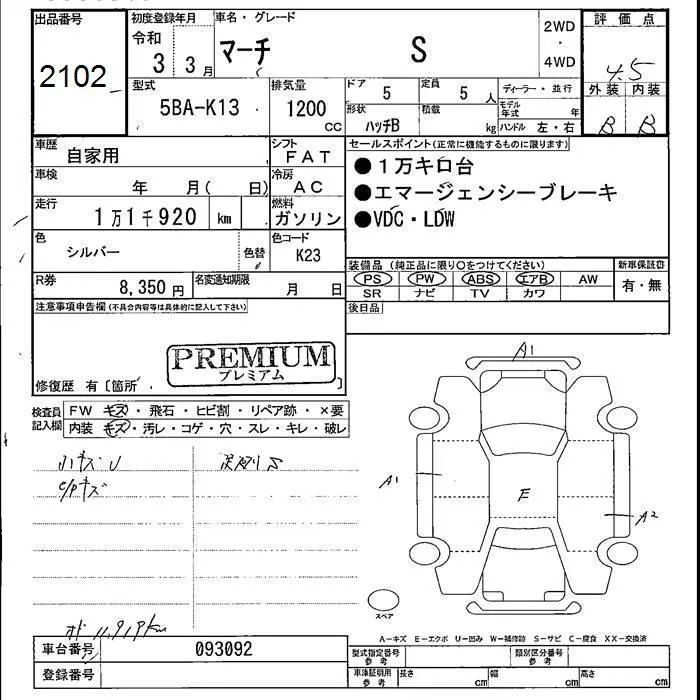 出品番号
2102
初度登録年月
令和
3 3月
車名・グレード
マーチ S
2WD
・
4WD
評価点
4.5
外装 内装
B B
型式
5BA-K13
排気量
1200
CC
ドア
5
定員
5 人
ディーラー・並行
形状
ハッチB
積載
kg
モデル年式 年
ハンドル 左・右
車歴
自家用
シフト
FAT
車検
年 月( 日)
冷房
AC
走行
1万1千920 km
燃料
ガソリン
色
シルバー
色替
色コード
K23
R券
8,350円
名変通知期限
月 日
セールスポイント(正常に機能するものに限ります)
●1万キロ台
●エマージェンシーブレーキ
●VDC・LDW
装備品 (純正品に限り○をつけてください)
PS PW ABS エアB AW
SR ナビ TV カワ
新車保証書
有・無
後日品
注意事項申告欄(不具合内容等は具体的に記入して下さい)
PREMIUM
プレミアム
修復歴 有〔箇所 〕
検査員記入欄
FW キズ・飛石・ヒビ割・リペア跡・×要
内装 キズ・汚レ・コゲ・穴・スレ・キレ・破レ
小キズU
C/Pキズ
A1
A1
F
A2
スペア
A−キズ E−エクボ U−凹み W−補修跡 S−サビ C−腐食 XX−交換済
11,919km
車台番号
093092
登録番号
型式指定番号
参考
類別区分番号
参考
車庫証明用
参考
長さ cm
幅 cm
高さ cm